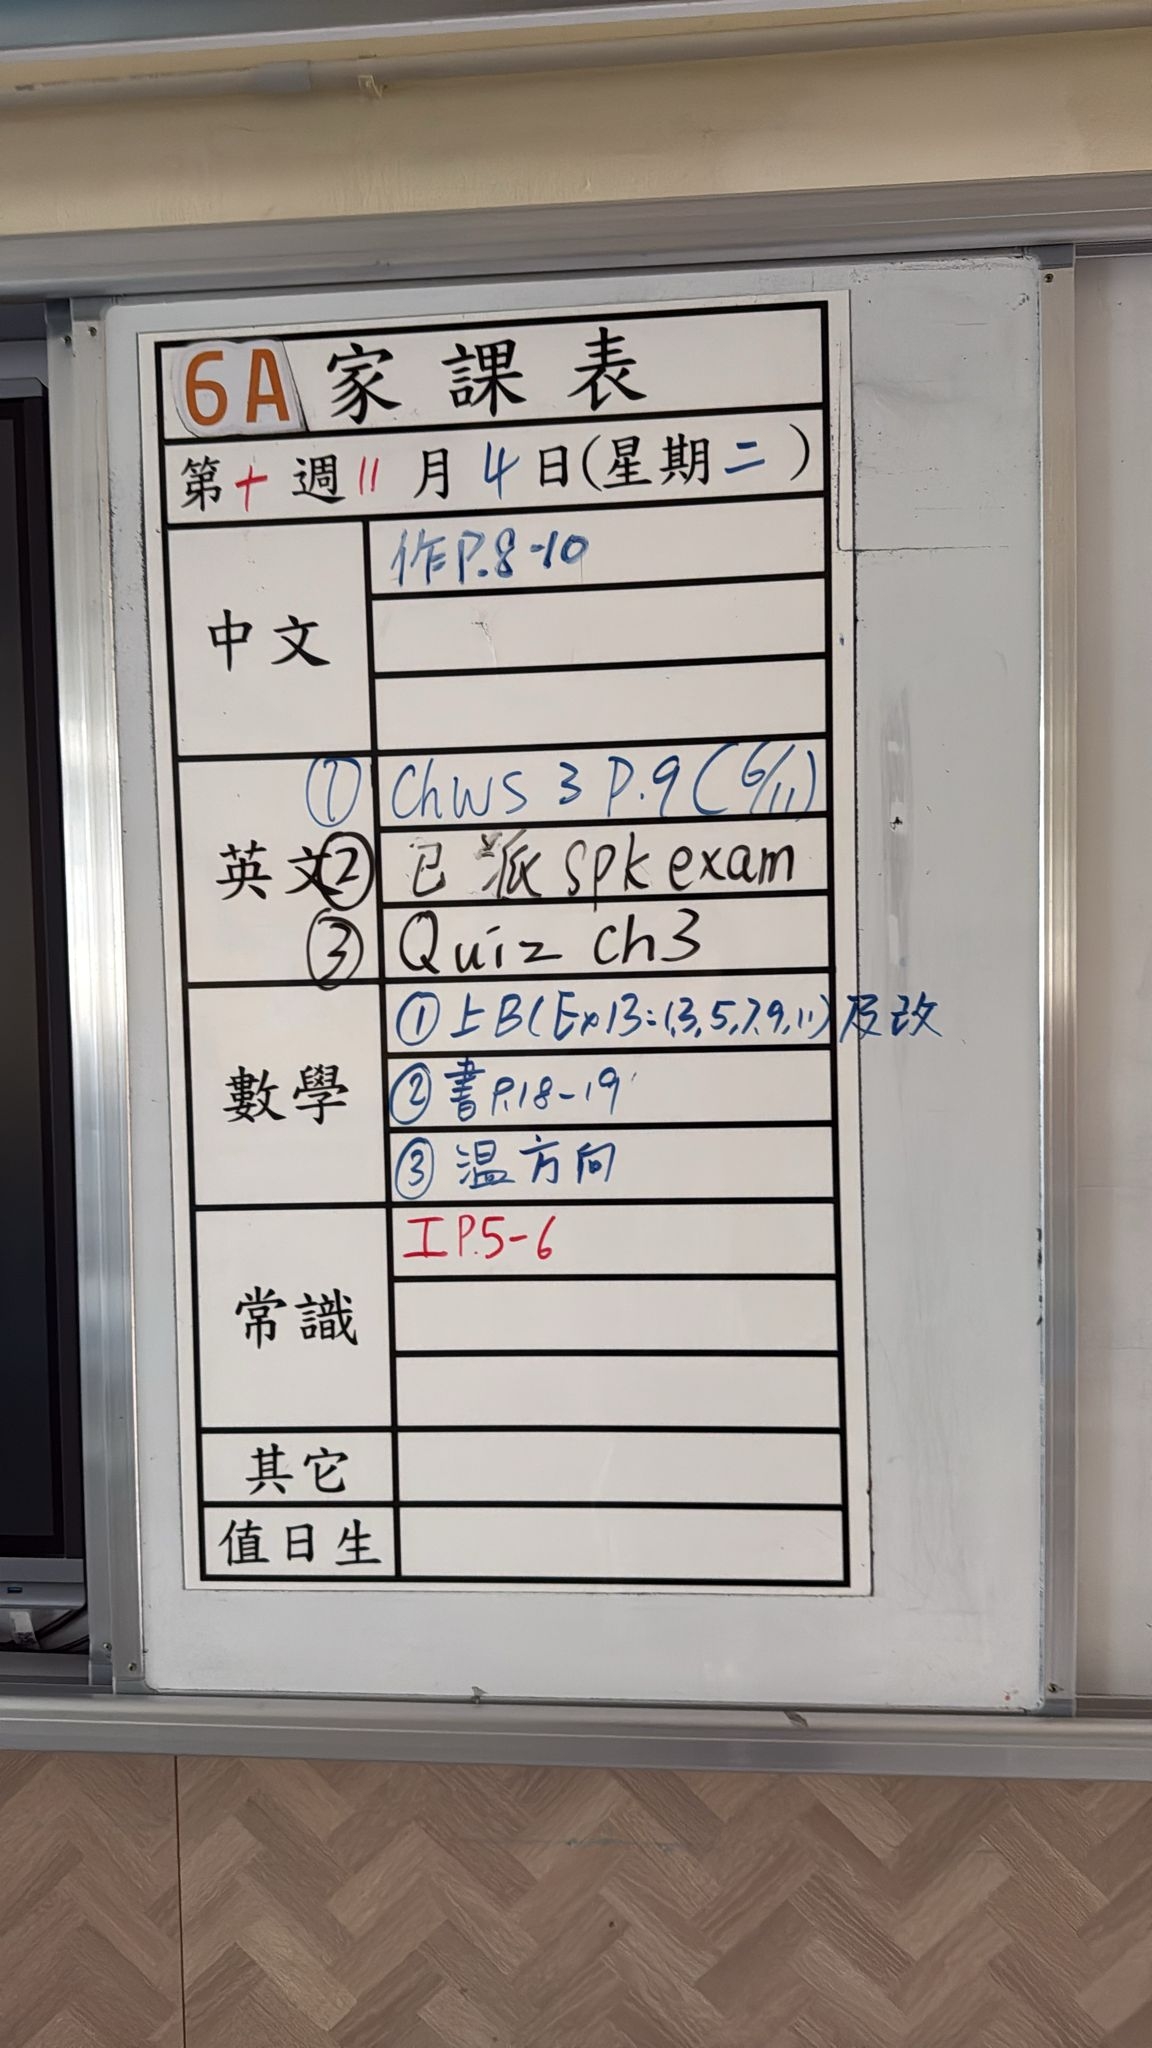 6A 家課表
第十週11月4日(星期二)
中文
作P.8-10
英文
① Chws 3 P.9 (6/11)
② 已派 spk exam
③ Quiz ch3
數學
① 上B(Ex13:1,3,5,7,9,11)及改
② 書P.18-19
③ 溫方向
常識
工P.5-6
其它
值日生